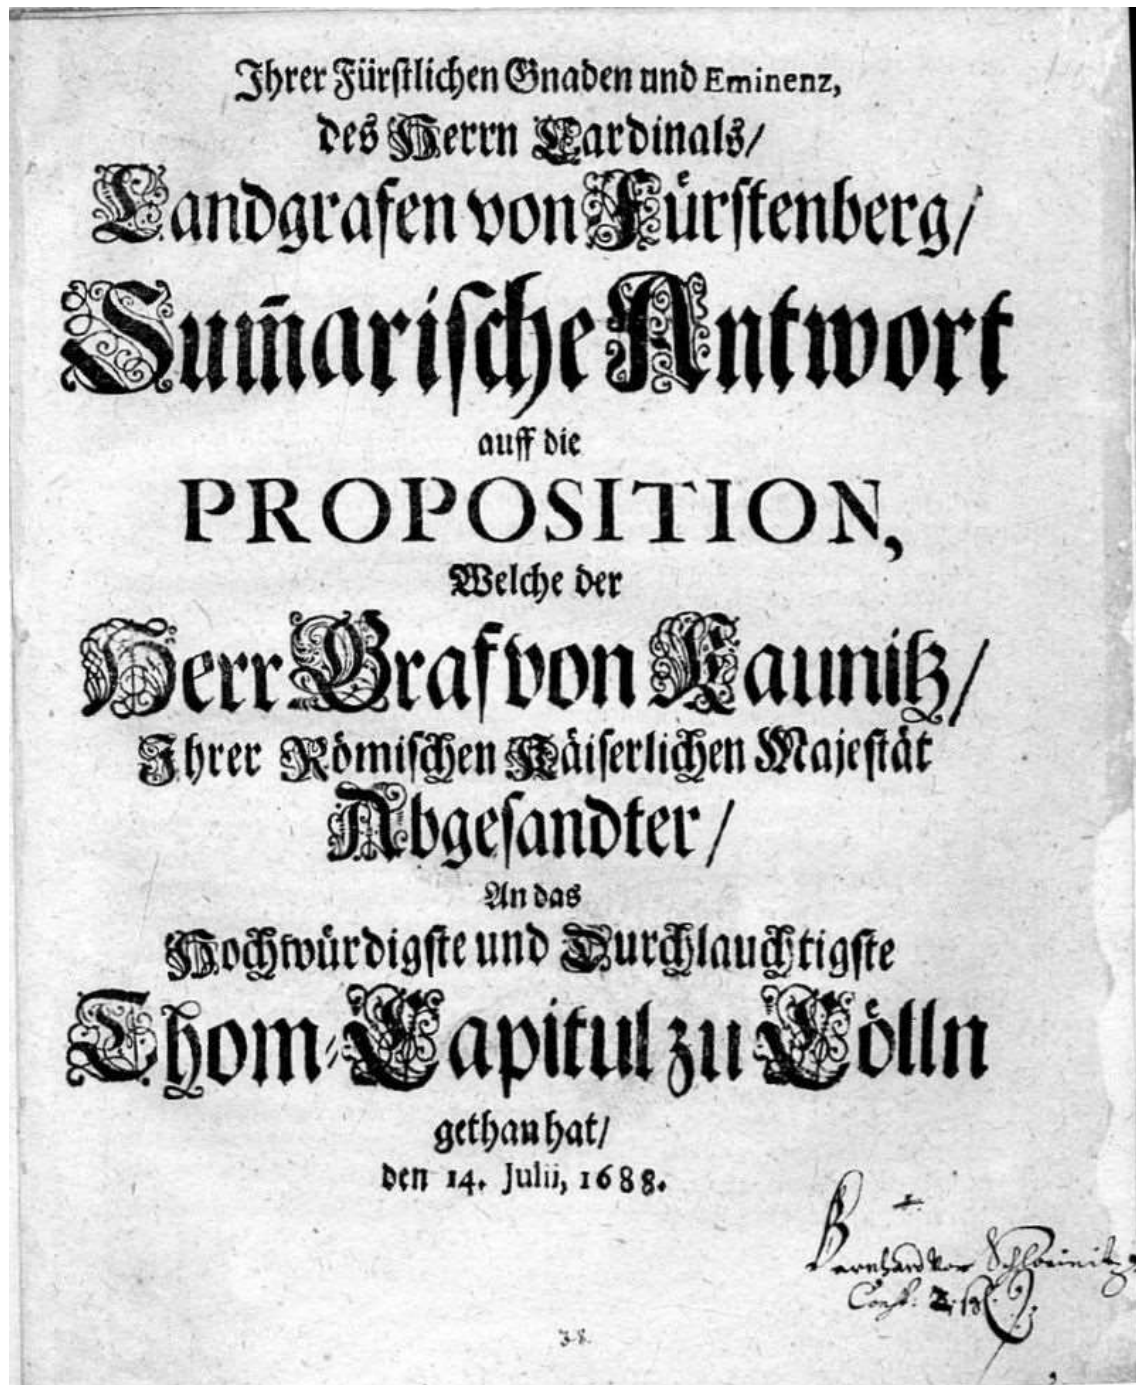 Ihrer Fürstlichen Gnaden und Eminenz,
des Herrn Cardinals/
Landgrafen von Fürstenberg/
Sum̄arische Antwort
auff die
PROPOSITION,
Welche der
Herr Graf von Kaunitz/
Ihrer Römischen Käiserlichen Majestät
Abgesandter/
An das
Hochwürdigste und Durchlauchtigste
Thom-Capitul zu Cölln
gethan hat/
den 14. Julii, 1688.
Bernhard von
38.